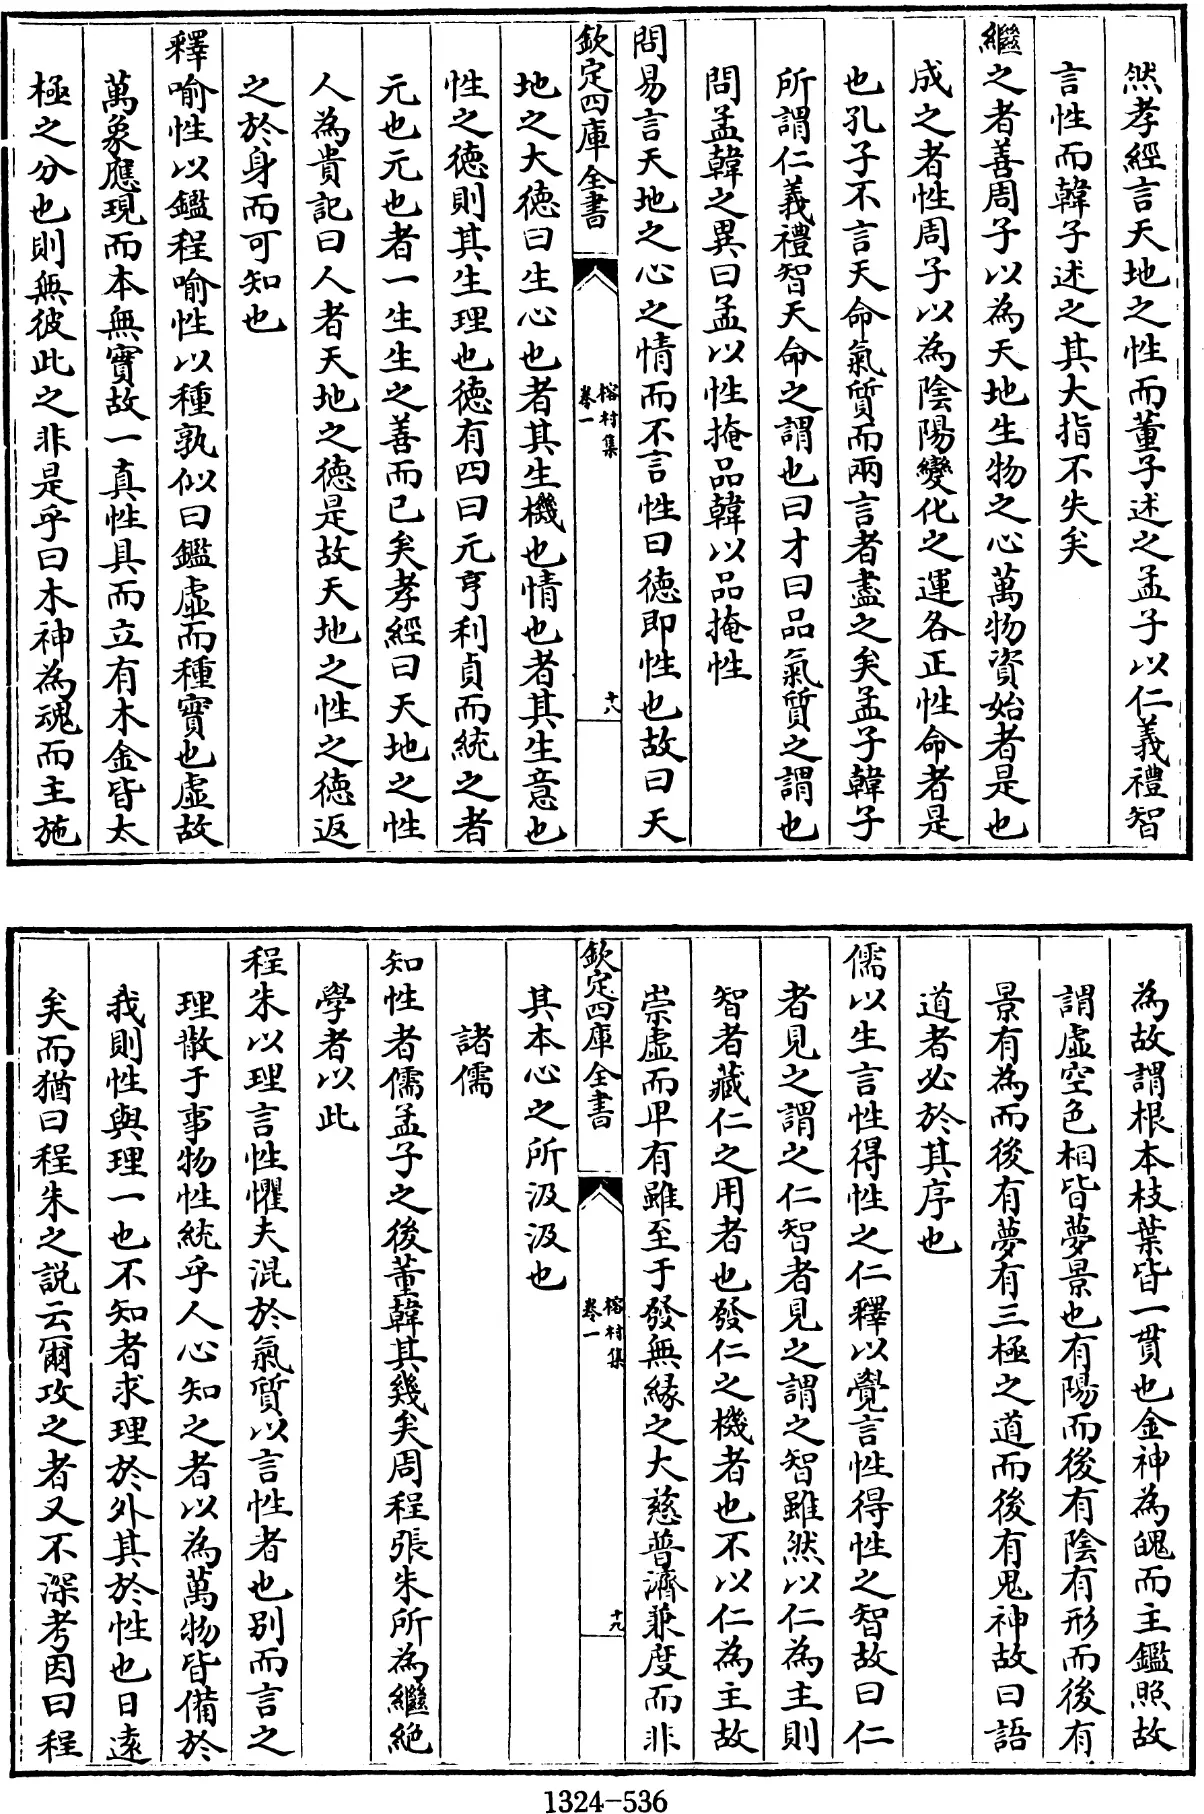 然孝經言天地之性而董子述之孟子以仁義禮智
言性而韓子述之其大指不失矣
繼之者善周子以為天地生物之心萬物資始者是也
成之者性周子以為陰陽變化之運各正性命者是
也孔子不言天命氣質而兩言者盡之矣孟子韓子
所謂仁義禮智天命之謂也曰才曰品氣質之謂也
問孟韓之異曰孟以性掩品韓以品掩性
問易言天地之心之情而不言性曰德即性也故曰天
欽定四庫全書
榕村集
卷一
十八
地之大德曰生心也者其生機也情也者其生意也
性之德則其生理也德有四曰元亨利貞而統之者
元也元也者一生生之善而已矣孝經曰天地之性
人為貴記曰人者天地之德是故天地之性之德返
之於身而可知也
釋喻性以鑑程喻性以種孰似曰鑑虛而種實也虛故
萬象應現而本無實故一真性具而立有木金皆太
極之分也則無彼此之非是乎曰木神為魂而主施
為故謂根本枝葉皆一貫也金神為魄而主鑑照故
謂虛空色相皆夢景也有陽而後有陰有形而後有
景有為而後有夢有三極之道而後有鬼神故曰語
道者必於其序也
儒以生言性得性之仁釋以覺言性得性之智故曰仁
者見之謂之仁智者見之謂之智雖然以仁為主則
智者藏仁之用者也發仁之機者也不以仁為主故
崇虛而卑有雖至于發無緣之大慈普濟兼度而非
欽定四庫全書
榕村集
卷一
十九
其本心之所汲汲也
諸儒
知性者儒孟子之後董韓其幾矣周程張朱所為繼絶
學者以此
程朱以理言性懼夫混於氣質以言性者也别而言之
理散于事物性統乎人心知之者以為萬物皆備於
我則性與理一也不知者求理於外其於性也日遠
矣而猶曰程朱之説云爾攻之者又不深考因曰程
1324-536